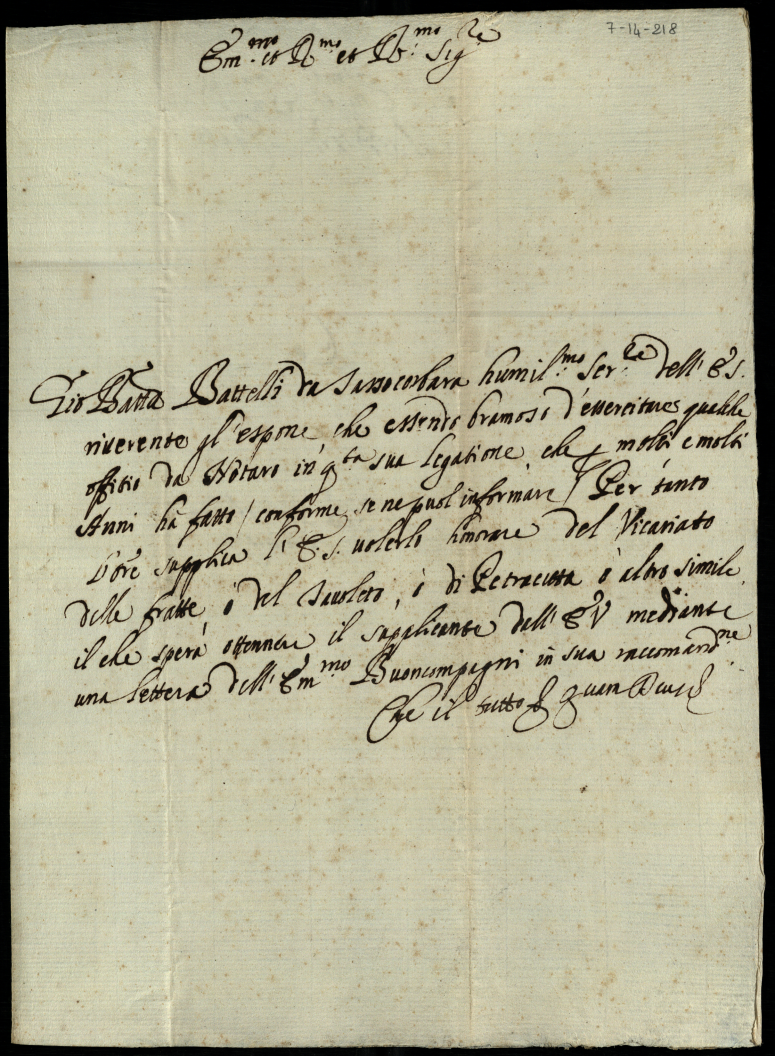 7-14-218
Em.mo et R.mo et R.mo Sig.re
Gio Batta Battelli da Sassocorbara humil.mo Ser.re dell' E.S.
riverente gl' espone che essendo bramoso d'essercitare qualche
offitio da Notaro in q.ta sua legatione che p molti e molti
Anni hà fatto / conforme se ne puol informare / Per tanto
supplica l' E.S. volerlo honorare del Vicariato
delle fratte, ò del Savoleto, ò di Petracuta ò altro simile
il che sperà ottennere il supplicante dall' E V mediante
una lettera dell' Em.mo Buoncompagni in sua raccomand.ne
Che il tutto quam Deus